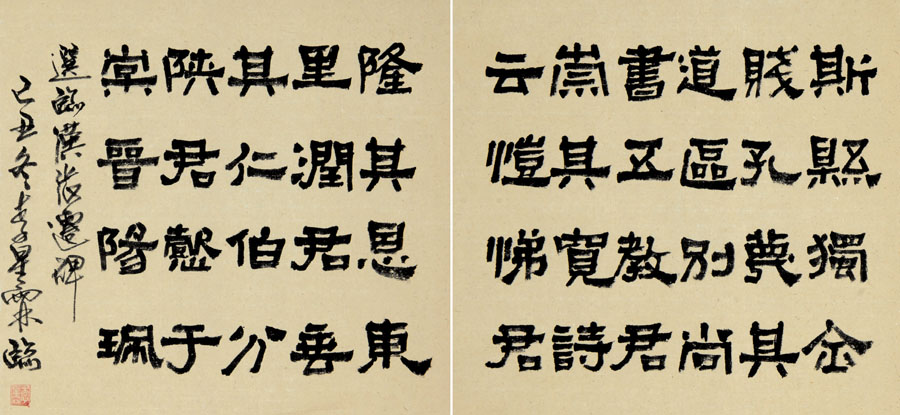 斯縣獨全
賤孔蔑其
道區別尚
書五教君
崇其寬詩
云愷悌君
隆其恩東
里潤君垂
其仁伯分
陝君懿于
棠晉陽珮
選臨漢張遷碑
己丑冬李星霖臨